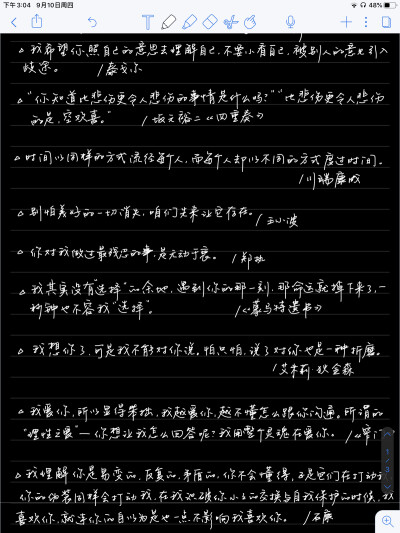 下午3:04 9月10日周四
48%
我希望你照自己的意思去理解自己，不要小看自己，被别人的意见引入
歧途。 /泰戈尔
"你知道比悲伤更令人悲伤的事情是什么吗？""比悲伤更令人悲伤
的是，空欢喜。" /坂元裕二《四重奏》
时间以同样的方式流经每个人，而每个人却以不同的方式度过时间。
/川端康成
别怕美好的一切消失，咱们先来让它存在。 /王小波
你对我做过最残忍的事，是无动于衷。 /郑执
我其实没有"选择"的余地，遇到你的那一刻，那命运就掉下来了，一
秒钟也不容我"选择"。 /《蓦马特遗书》
我想你了，可是我不能对你说。怕只怕，说了对你也是一种折磨。
/艾米莉·狄金森
我爱你，所以显得笨拙，我越爱你，越不懂怎么跟你沟通。所谓的
"理性之爱"—你想让我怎么回答呢？我用整个灵魂在爱你。
我理解你是易变的，反复的，矛盾的，你不会懂得，正是它们在打动
你的伪装同样会打动我，在我识破你小小的交换与自我保护的时候，我
喜欢你，就连你的自以为是也一点不影响我喜欢你。 /石康